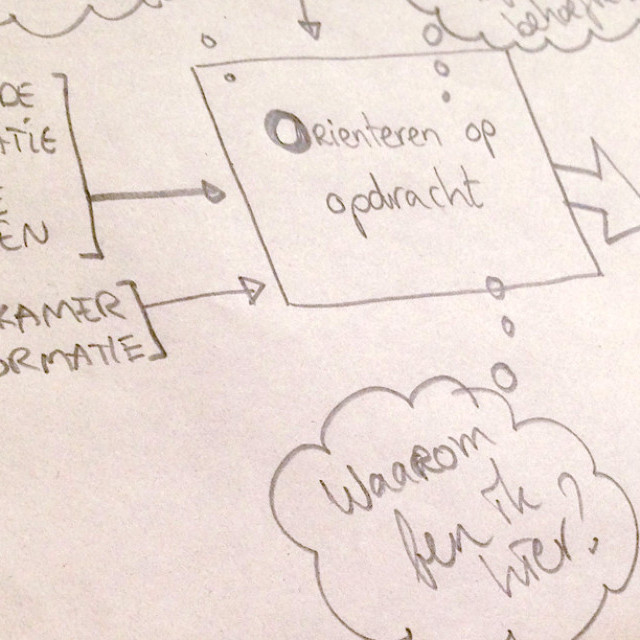 DE
ATIE
E
EN
KAMER
ORMATIE
Orienteren op
opdracht
Waarom
ben ik
hier?